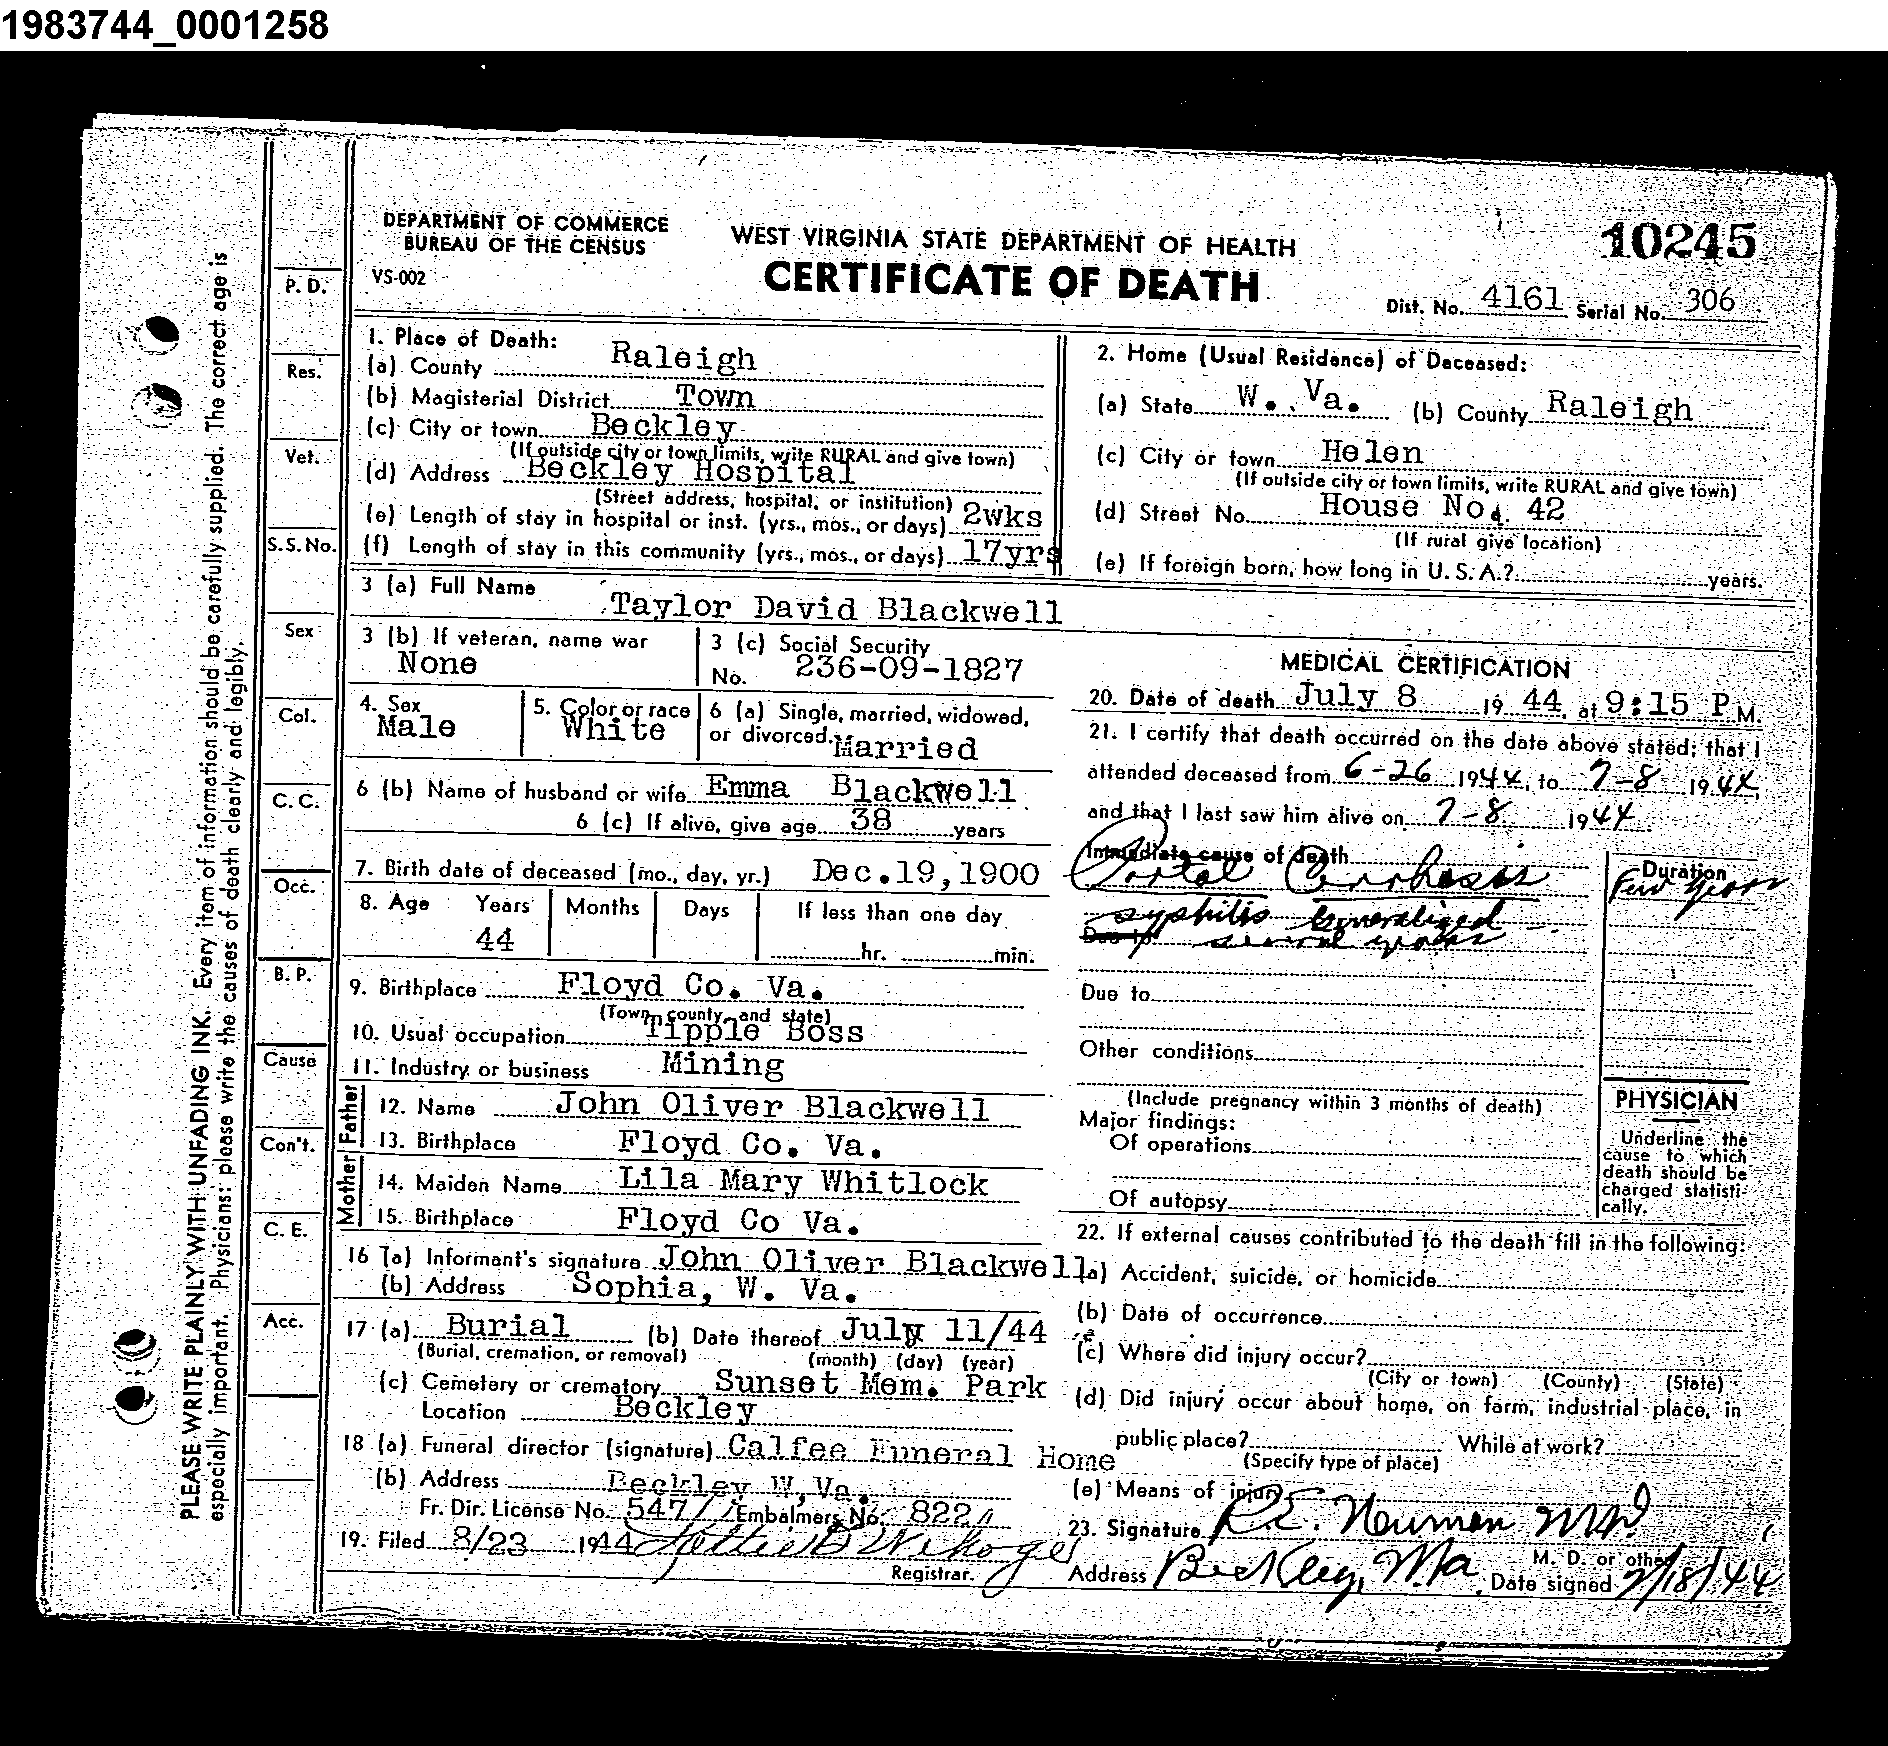 1983744_0001258
DEPARTMENT OF COMMERCE
BUREAU OF THE CENSUS
VS-002
WEST VIRGINIA STATE DEPARTMENT OF HEALTH
CERTIFICATE OF DEATH
10245
Dist. No. 4161 Serial No. 306
PLEASE WRITE PLAINLY WITH UNFADING INK. Every item of information should be carefully supplied. The correct age is
especially important. Physicians: please write the causes of death clearly and legibly.
P. D.
Res.
Vet.
S. S. No.
Sex
Col.
C. C.
Occ.
B. P.
Cause
Con't.
C. E.
Acc.
1. Place of Death:
(a) County Raleigh
(b) Magisterial District Town
(c) City or town Beckley
(If outside city or town limits, write RURAL and give town)
(d) Address Beckley Hospital
(Street address, hospital, or institution)
(e) Length of stay in hospital or inst. (yrs., mos., or days) 2wks
(f) Length of stay in this community (yrs., mos., or days) 17yrs
2. Home (Usual Residence) of Deceased:
(a) State W. Va. (b) County Raleigh
(c) City or town Helen
(If outside city or town limits, write RURAL and give town)
(d) Street No. House No. 42
(If rural give location)
(e) If foreign born, how long in U. S. A.? years.
3 (a) Full Name Taylor David Blackwell
3 (b) If veteran, name war None
3 (c) Social Security No. 236-09-1827
4. Sex Male
5. Color or race White
6 (a) Single, married, widowed, or divorced. Married
6 (b) Name of husband or wife Emma Blackwell
6 (c) If alive, give age 38 years
7. Birth date of deceased (mo., day, yr.) Dec.19,1900
8. Age Years Months Days If less than one day
44 hr. min.
9. Birthplace Floyd Co. Va.
(Town, county, and state)
10. Usual occupation Tipple Boss
11. Industry or business Mining
Father
12. Name John Oliver Blackwell
13. Birthplace Floyd Co. Va.
Mother
14. Maiden Name Lila Mary Whitlock
15. Birthplace Floyd Co Va.
16 (a) Informant's signature John Oliver Blackwell
(b) Address Sophia, W. Va.
17 (a) Burial (b) Date thereof July 11/44
(Burial, cremation, or removal) (month) (day) (year)
(c) Cemetery or crematory Sunset Mem. Park
Location Beckley
18 (a) Funeral director (signature) Calfee Funeral Home
(b) Address Beckley W,Va.
Fr. Dir. License No. 547 Embalmers No. 822
19. Filed 8/23 1944 Lottie
Registrar.
MEDICAL CERTIFICATION
20. Date of death July 8 19 44, at 9:15 P M.
21. I certify that death occurred on the date above stated; that I
attended deceased from 6-26 1944, to 7-8 1944,
and that I last saw him alive on 7-8 1944
Immediate cause of death Duration
Portal Cirrhosis Few years
syphilis Generalized
Due to several years
Due to
Other conditions
(Include pregnancy within 3 months of death)
Major findings:
Of operations
Of autopsy
PHYSICIAN
Underline the
cause to which
death should be
charged statisti-
cally.
22. If external causes contributed to the death fill in the following:
(a) Accident, suicide, or homicide
(b) Date of occurrence
(c) Where did injury occur?
(City or town) (County) (State)
(d) Did injury occur about home, on farm, industrial place, in
public place? While at work?
(Specify type of place)
(e) Means of injury
23. Signature R.E. Newman M.D.
M. D. or other
Address Beckley, W.Va. Date signed 7/18/44